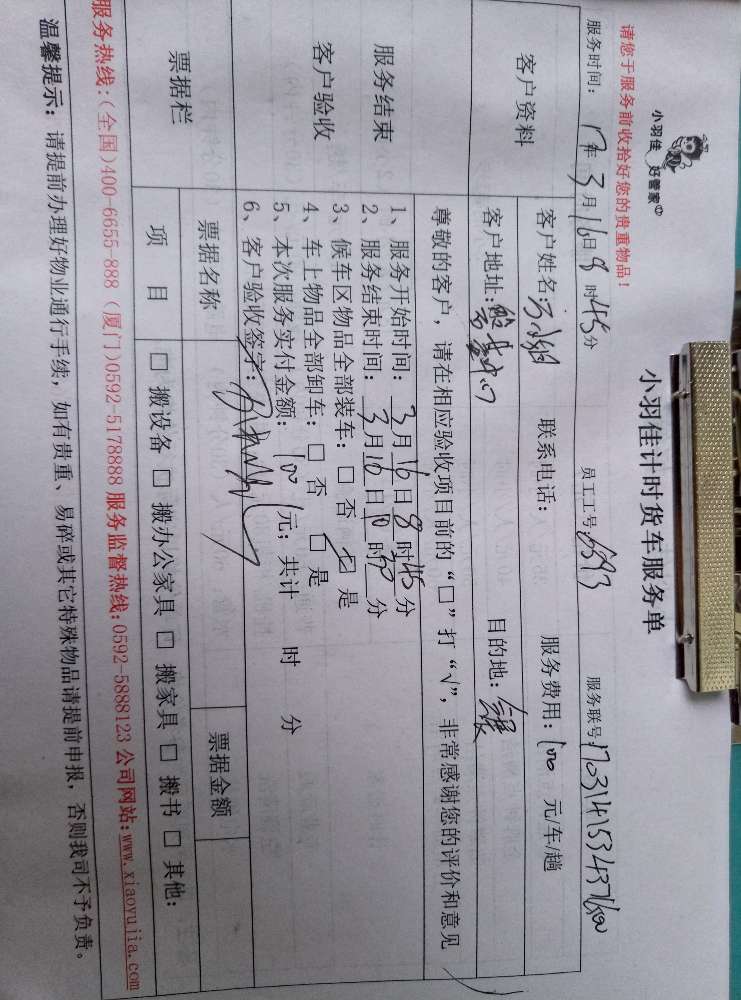 小羽佳 好管家
小羽佳计时货车服务单
请您于服务前收拾好您的贵重物品！
服务时间：17年3月16日8时45分 员工工号 服务联号
客户资料 客户姓名： 联系电话： 服务费用：100元/车/趟
客户地址： 目的地：
尊敬的客户，请在相应验收项目前的“□”打“√”，非常感谢您的评价和意见
服务结束
客户验收
1、服务开始时间：3月16日8时45分
2、服务结束时间：3月16日10时30分
3、候车区物品全部装车：□ 否 □ 是
4、车上物品全部卸车：□ 否 □ 是
5、本次服务实付金额：100元；共计 时 分
6、客户验收签字：
票据栏 票据名称 票据金额
项 目 □ 搬设备 □ 搬办公家具 □ 搬家具 □ 搬书 □ 其他：
服务热线：（全国）400-6655-888（厦门）0592-5178888 服务监督热线：0592-5888123 公司网站：www.xiaoyujia.com
温馨提示：请提前办理好物业通行手续，如有贵重、易碎或其它特殊物品请提前申报，否则我司不予负责。